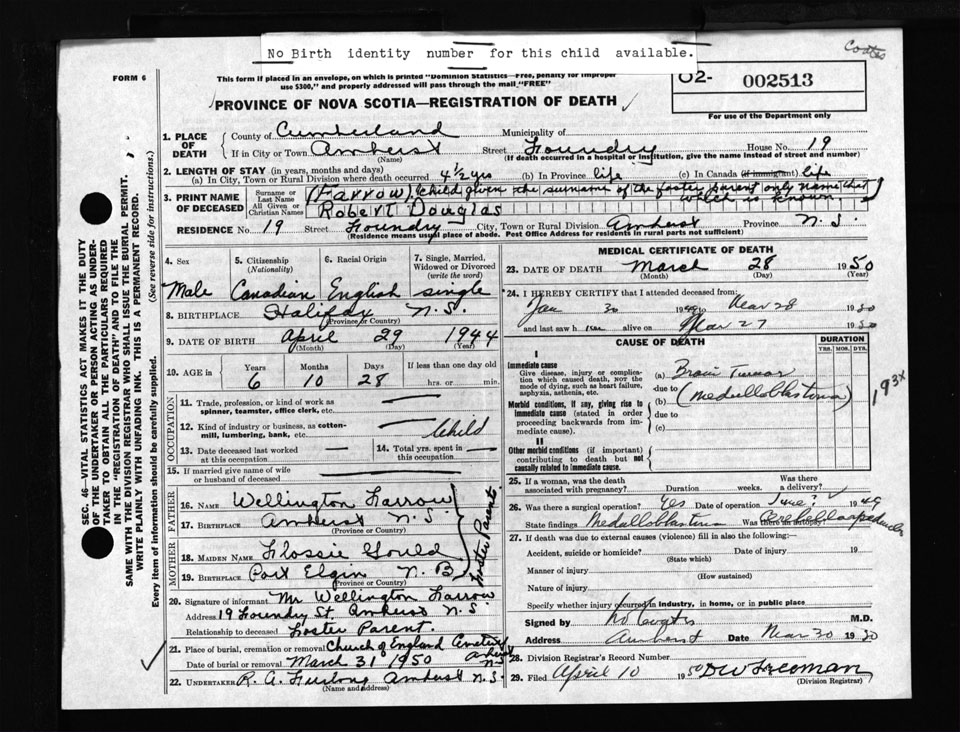 No Birth identity number for this child available.
Coates
FORM 6
This form if placed in an envelope, on which is printed "Dominion Statistics—Free, penalty for improper
use $300," and properly addressed will pass through the mail "FREE"
02- 002513
For use of the Department only
PROVINCE OF NOVA SCOTIA—REGISTRATION OF DEATH
SEC. 46—VITAL STATISTICS ACT MAKES IT THE DUTY
OF THE UNDERTAKER OR PERSON ACTING AS UNDER-
TAKER TO OBTAIN ALL THE PARTICULARS REQUIRED
IN THE "REGISTRATION OF DEATH" AND TO FILE THE
SAME WITH THE DIVISION REGISTRAR WHO SHALL ISSUE THE BURIAL PERMIT.
WRITE PLAINLY WITH UNFADING INK. THIS IS A PERMANENT RECORD.
Every item of information should be carefully supplied. (See reverse side for instructions.)
1. PLACE OF DEATH County of Cumberland Municipality of
If in City or Town Amherst Street Foundry House No. 19
(Name) (If death occurred in a hospital or institution, give the name instead of street and number)
2. LENGTH OF STAY (in years, months and days)
(a) In City, Town or Rural Division where death occurred 4½ yrs (b) In Province life (c) In Canada (if immigrant) life
3. PRINT NAME OF DECEASED Surname or Last Name (Farrow) (child given the surname of the foster parent only name that which is known)
All Given or Christian Names Robert Douglas
RESIDENCE No. 19 Street Foundry City, Town or Rural Division Amherst Province N.S.
(Residence means usual place of abode. Post Office Address for residents in rural parts not sufficient)
4. Sex Male
5. Citizenship (Nationality) Canadian
6. Racial Origin English
7. Single, Married, Widowed or Divorced (write the word) single
8. BIRTHPLACE Halifax N.S.
(Province or Country)
9. DATE OF BIRTH April 29 1944
(Month) (Day) (Year)
10. AGE in Years 6 Months 10 Days 28 If less than one day old hrs. or min.
OCCUPATION
11. Trade, profession, or kind of work as spinner, teamster, office clerk, etc.
12. Kind of industry or business, as cotton-mill, lumbering, bank, etc. Child
13. Date deceased last worked at this occupation
14. Total yrs. spent in this occupation
15. If married give name of wife or husband of deceased
FATHER
16. NAME Wellington Farrow
17. BIRTHPLACE Amherst N.S.
(Province or Country)
MOTHER
18. MAIDEN NAME Flossie Gould
19. BIRTHPLACE Port Elgin N.B
(Province or Country)
Foster Parents
20. Signature of informant Mr Wellington Farrow
Address 19 Foundry St. Amherst N.S.
Relationship to deceased Foster Parent.
21. Place of burial, cremation or removal Church of England Cemetery Amherst N.S.
Date of burial or removal March 31 1950
22. UNDERTAKER R. A. Furlong Amherst N.S.
(Name and address)
MEDICAL CERTIFICATE OF DEATH
23. DATE OF DEATH March 28 1950
(Month) (Day) (Year)
24. I HEREBY CERTIFY that I attended deceased from:
Jan 30 1949 to Mar 28 1950
and last saw him alive on Mar 27 1950
CAUSE OF DEATH DURATION
YRS. MOS. DYS.
I
Immediate cause
Give disease, injury or complication which caused death, NOT the mode of dying, such as heart failure, asphyxia, asthenia, etc.
(a) Brain Tumor
due to
(b) (medulloblastoma) 193x
Morbid conditions, if any, giving rise to immediate cause (stated in order proceeding backwards from immediate cause).
due to
(c)
II
Other morbid conditions (if important) contributing to death but not causally related to immediate cause.
25. If a woman, was the death associated with pregnancy? Duration weeks. Was there a delivery?
26. Was there a surgical operation? Yes Date of operation June? 1949
State findings Medulloblastoma Was there an autopsy?
27. If death was due to external causes (violence) fill in also the following:—
Accident, suicide or homicide? Date of injury 19
(State which)
Manner of injury
(How sustained)
Nature of injury
Specify whether injury occurred in industry, in home, or in public place
Signed by Coates M.D.
Address Amherst Date Mar 30 1950
28. Division Registrar's Record Number
29. Filed April 10 1950 DW Freeman
(Division Registrar)